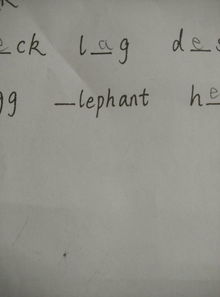 eck lag des
gg _lephant he